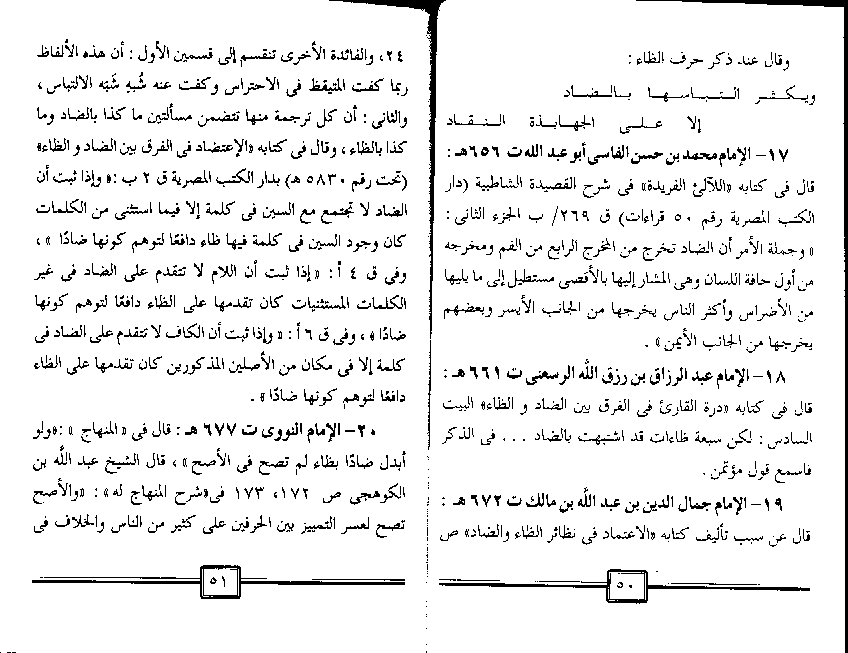 وقال عند ذكر حرف الظاء :
ويـكـثـر الـتـبـاسـهـا بـالـضـاد
إلا عـلـى الجهـابـذة الـنـقـاد
١٧- الإمام محمد بن حسن الفاسى أبو عبد الله ت ٦٥٦ هـ :
قال فى كتابه «اللآلئ الفريدة» فى شرح القصيدة الشاطبية (دار
الكتب المصرية رقم ٥٠ قراءات) ق ٢٦٩/ ب الجزء الثانى :
« وجملة الأمر أن الضاد تخرج من المخرج الرابع من الفم ومخرجه
من أول حافة اللسان وهى المشار إليها بالأقصى مستطيل إلى ما يليها
من الأضراس وأكثر الناس يخرجها من الجانب الأيسر وبعضهم
يخرجها من الجانب الأيمن » .
١٨- الإمام عبد الرزاق بن رزق الله الرسعنى ت ٦٦١ هـ :
قال فى كتابه «درة القارئ فى الفرق بين الضاد و الظاء» البيت
السادس : لكن سبعة ظاءات قد اشتبهت بالضاد ... فى الذكر
فاسمع قول مؤتمن .
١٩- الإمام جمال الدين بن عبد الله بن مالك ت ٦٧٢ هـ :
قال عن سبب تأليف كتابه «الاعتماد فى نظائر الظاء والضاد» ص
٥٠
٢٤، والفائدة الأخرى تنقسم إلى قسمين الأول : أن هذه الألفاظ
ربما كفت المتيقظ فى الاحتراس وكفت عنه شُبهِ شَبَه الالتباس ،
والثانى : أن كل ترجمة منها تتضمن مسألتين ما كذا بالضاد وما
كذا بالظاء ، وقال فى كتابه «الإعتضاد فى الفرق بين الضاد و الظاء»
(تحت رقم ٥٨٣٠ هـ) بدار الكتب المصرية ق ٢ ب :« وإذا ثبت أن
الضاد لا تجتمع مع السين فى كلمة إلا فيما استثنى من الكلمات
كان وجود السين فى كلمة فيها ظاء دافعًا لتوهم كونها ضادًا » ،
وفى ق ٤ أ : «إذا ثبت أن اللام لا تتقدم على الضاد فى غير
الكلمات المستثنيات كان تقدمها على الظاء دافعًا لتوهم كونها
ضادًا » ، وفى ق ٦ أ : « وإذا ثبت أن الكاف لا تتقدم على الضاد فى
كلمة إلا فى مكان من الأصلين المذكورين كان تقدمها على الظاء
دافعًا لتوهم كونها ضادًا» .
٢٠- الإمام النووى ت ٦٧٧ هـ : قال فى « المنهاج » :«ولو
أبدل ضادًا بظاء لم تصح فى الأصح » ، قال الشيخ عبد الله بن
الكوهجى ص ١٧٢، ١٧٣ فى«شرح المنهاج له» : «والأصح
تصح لعسر التمييز بين الحرفين على كثير من الناس والخلاف فى
٥١